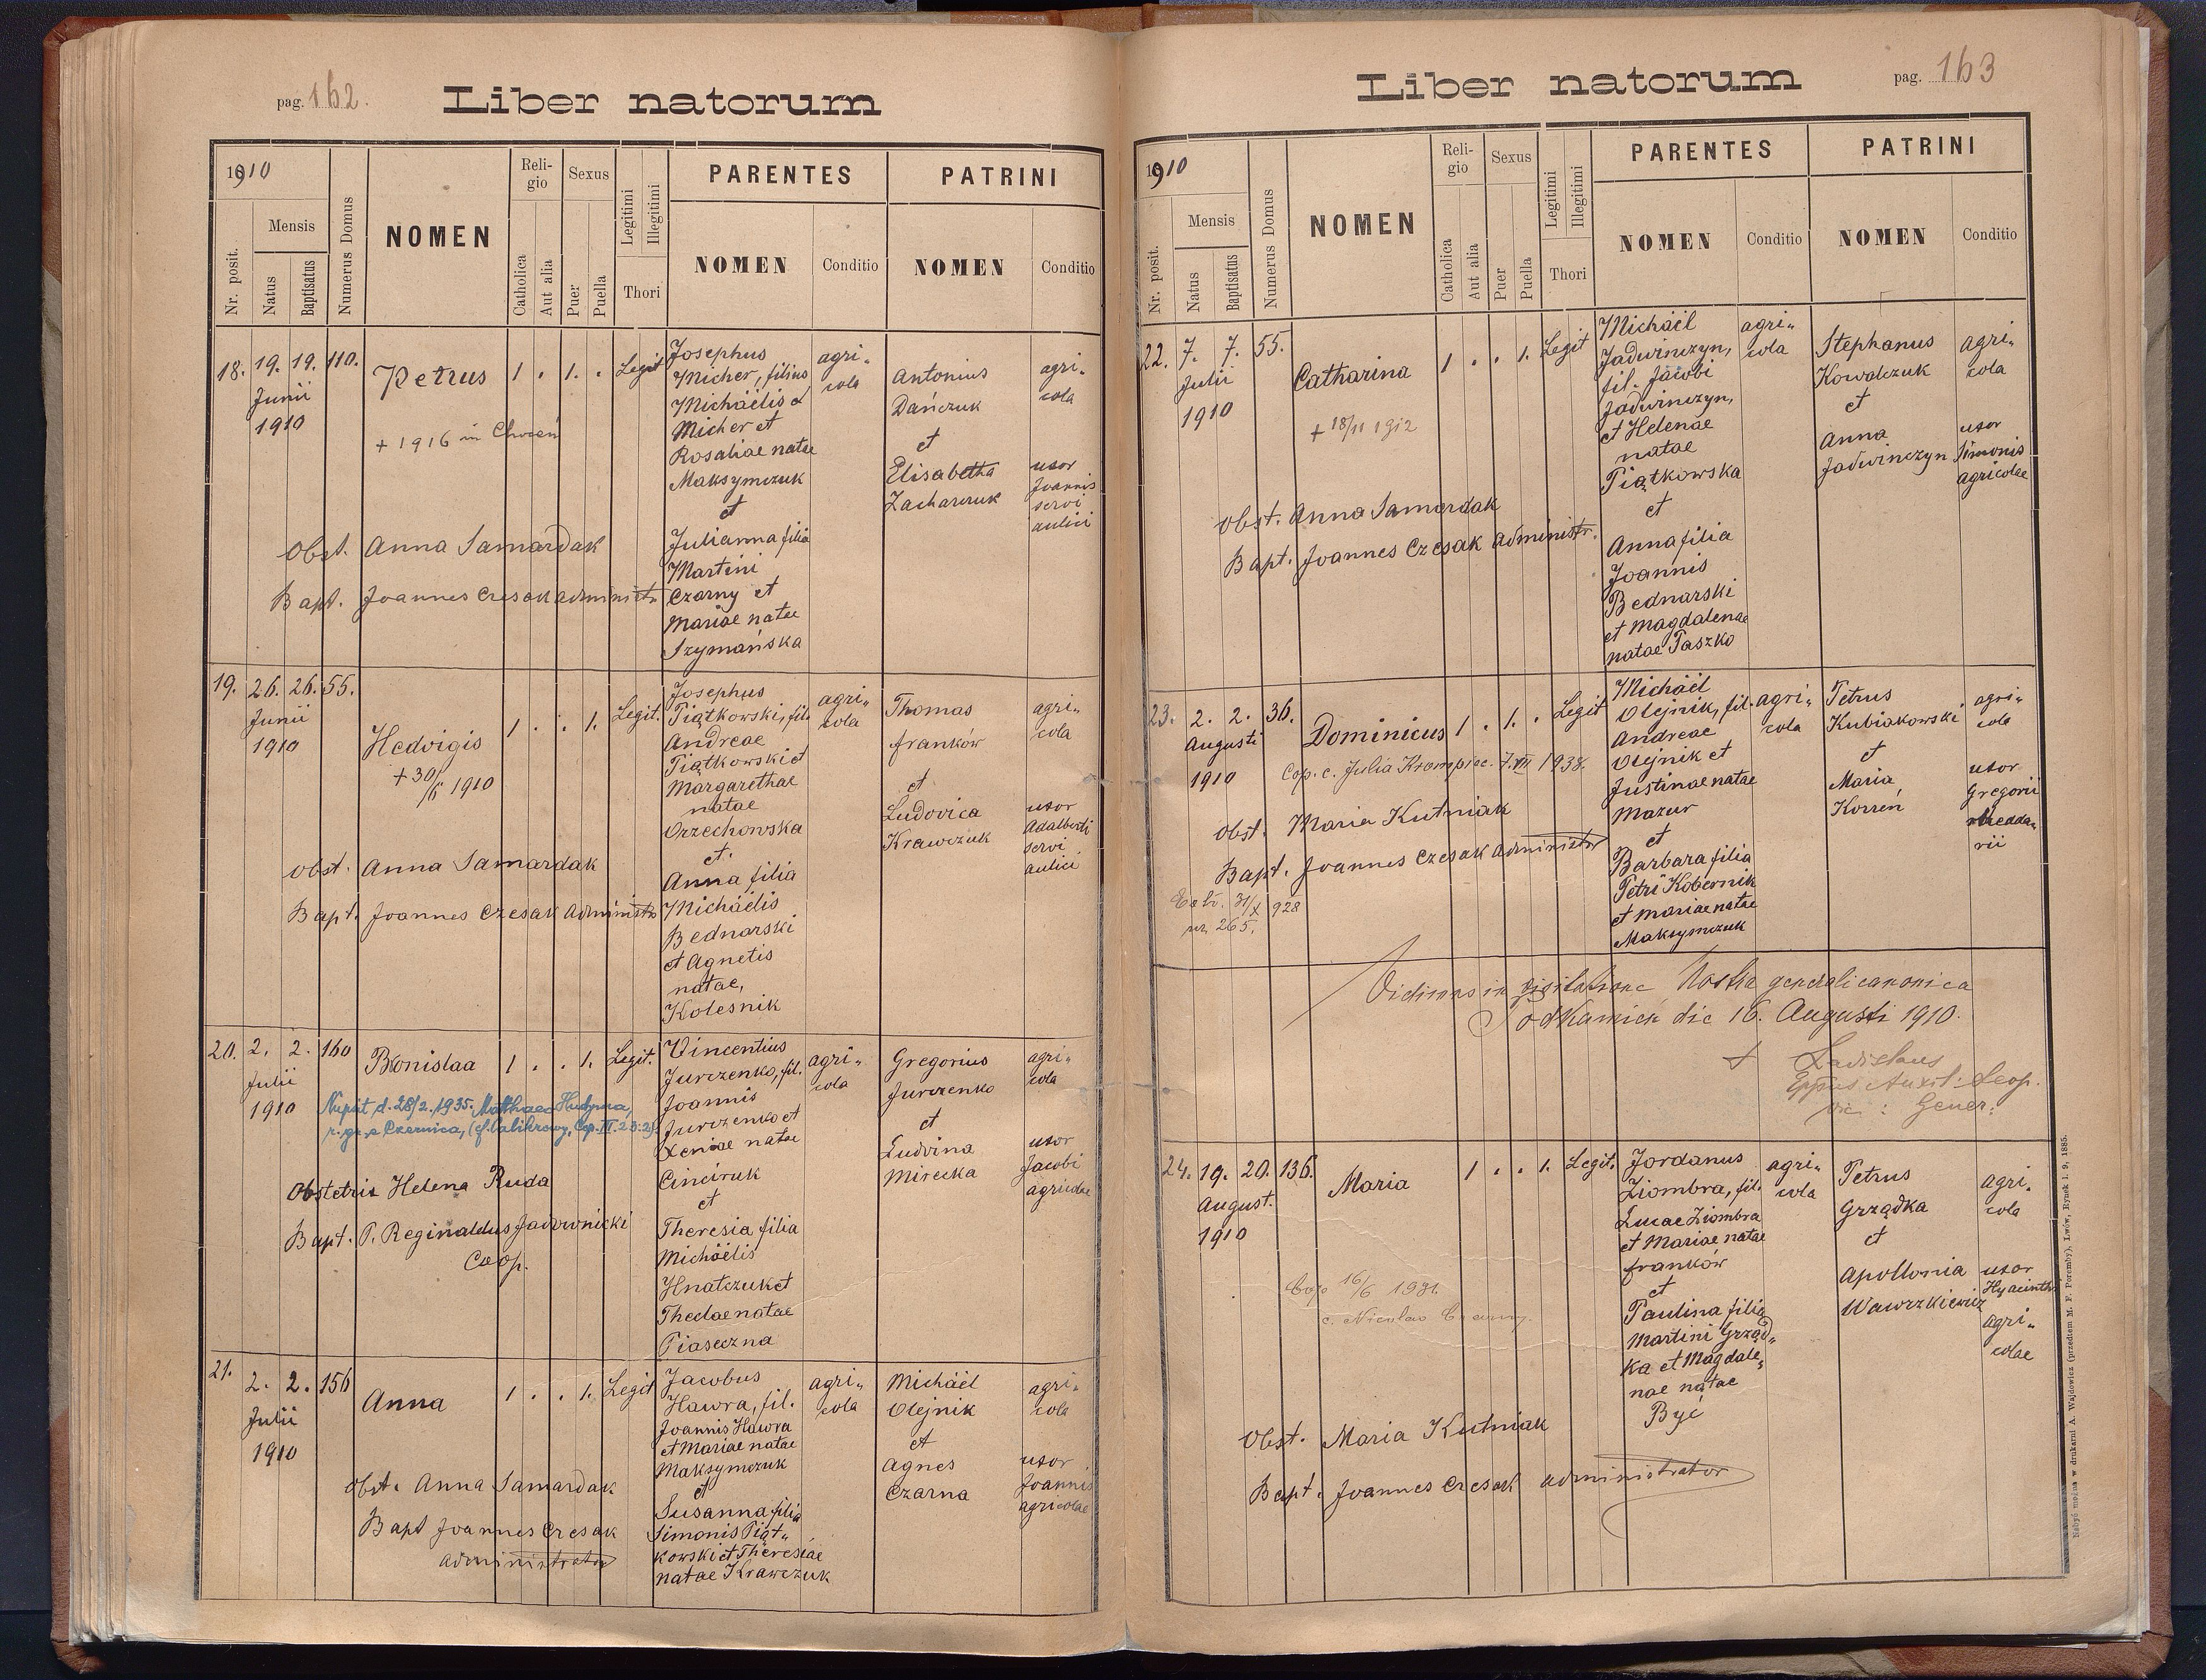 pag. 162.
Liber natorum
1910
Nr. posit.
Mensis
Natus
Baptisatus
Numerus Domus
NOMEN
Reli-
gio
Catholica
Aut alia
Sexus
Puer
Puella
Legitimi
Illegitimi
Thori
PARENTES
NOMEN
Conditio
PATRINI
NOMEN
Conditio
18. 19. 19. 110.
Junii
1910
Petrus
1 . 1. . Legit
+ 1916 in
Obst. Anna Samardak
Bapt. Joannes Czesak administr
Josephus
Micher, filius
Michaëlis
Micher et
Rosaliae natae
Maksymczuk
et
Julianna filia
Martini
Czarny et
Mariae natae
Szymańska
agri-
cola
Antonius
Dańczuk
et
Elisabetha
Zacharczuk
agri-
cola
uxor
Joannis
servi
aulici
19. 26. 26. 55.
Junii
1910
Hedvigis
1 . . 1. Legit.
+ 30/6 1910
obst. Anna Samardak
Bapt. Joannes Czesak Administr
Josephus
Piątkowski, fil.
Andreae
Piątkowski et
Margarethae
natae
Orzechowska
et.
Anna filia
Michaëlis
Bednarski
et Agnetis
natae,
Kolesnik
agri-
cola
Thomas
franków
et
Ludovica
Krawczuk
agri-
cola
uxor
Adalberti
servi
aulici
20. 2. 2. 160
Julii
1910
Bronislaa
1 . . 1. Legit.
Nupsit d. 28/2. 1935. Matthaeo Hudyma,
r. gr. e Czernica,
Obstetrix Helena Ruda
Bapt. P. Reginaldus Jadownicki
Coop.
Vincentius
Jurczenko, fil.
Joannis
Jurczenko et
Xeniae natae
Cinciruk
et
Theresia filia
Michaëlis
Hnatczuk et
Theclae natae
Piaseczna
agri-
cola
Gregorius
Jurczenko
et
Ludvina
Mirecka
agri-
cola
uxor
Jacobi
agricolae
21. 2. 2. 156
Julii
1910
Anna
1 . . 1. Legit
obst. Anna Samardak
Bapt Joannes Czesak
administrator
Jacobus
Hawra, fil.
Joannis Hawra
et Mariae natae
Maksymczuk
et
Susanna filia
Simonis Piąt-
kowski et Theresiae
natae Krawczuk
agri-
cola
Michaël
Olejnik
et
Agnes
Czarna
agri-
cola
uxor
Joannis
agricolae
pag. 163
Liber natorum
1910
Nr. posit.
Mensis
Natus
Baptisatus
Numerus Domus
NOMEN
Reli-
gio
Catholica
Aut alia
Sexus
Puer
Puella
Legitimi
Illegitimi
Thori
PARENTES
NOMEN
Conditio
PATRINI
NOMEN
Conditio
22. 7. 7. 55.
Julii
1910
Catharina
1 . . 1. Legit
+ 18/11 1912
Obst. Anna Samerdak
Bapt. Joannes Czesak administr.
Michaël
Jadwinczyn,
fil. Jacobi
Jadwinczyn,
et Helenae
natae
Piątkowska
et
Anna filia
Joannis
Bednarski
et Magdalenae
natae Paszko
agri-
cola
Stephanus
Kowalczuk
et
Anna
Jadwinczyn
agri-
cola
uxor
Simonis
agricolae
23. 2. 2. 36.
Augusti
1910
Dominicus
1 . 1. . Legit
Cop. c. Julia Krompiec. 7. VII 1938.
Obst. Maria Kutniak
Bapt. Joannes Czesak administr
31/X 928
nr. 265.
Michaël
Olejnik, fil.
Andreae
Olejnik et
Justinae natae
Mazur
et
Barbara filia
Petri Kobernik
et Mariae natae
Maksymczuk
agri-
cola
Petrus
Kubiakowski
et
Maria
Korzeń
agri-
cola
uxor
Gregorii
rii
Vidimus in visitatione Nostra generali canonica
Podkamień die 16. Augusti 1910.
+ Ladislaus
Eppus Auxil: Leop.
Vic: Gener:
24. 19. 20. 136.
August.
1910
Maria
1 . . 1. Legit.
Cop 16/6 1931.
Obst. Maria Kutniak
Bapt. Joannes Czesak administrator
Jordanus
Ziombra, fil.
Lucae Ziombra
et Mariae natae
franków
et
Paulina filia
Martini Grząd-
ka et Magdale-
nae natae
Być
agri-
cola
Petrus
Grządka
et
Apollonia
Wawrzkiewicz
agri-
cola
uxor
Hyacinthi
agri-
colae
Nabyć można w drukarni A. Wajdowicz (przedtem M. F. Poremby), Lwów, Rynek l. 9, 1885.